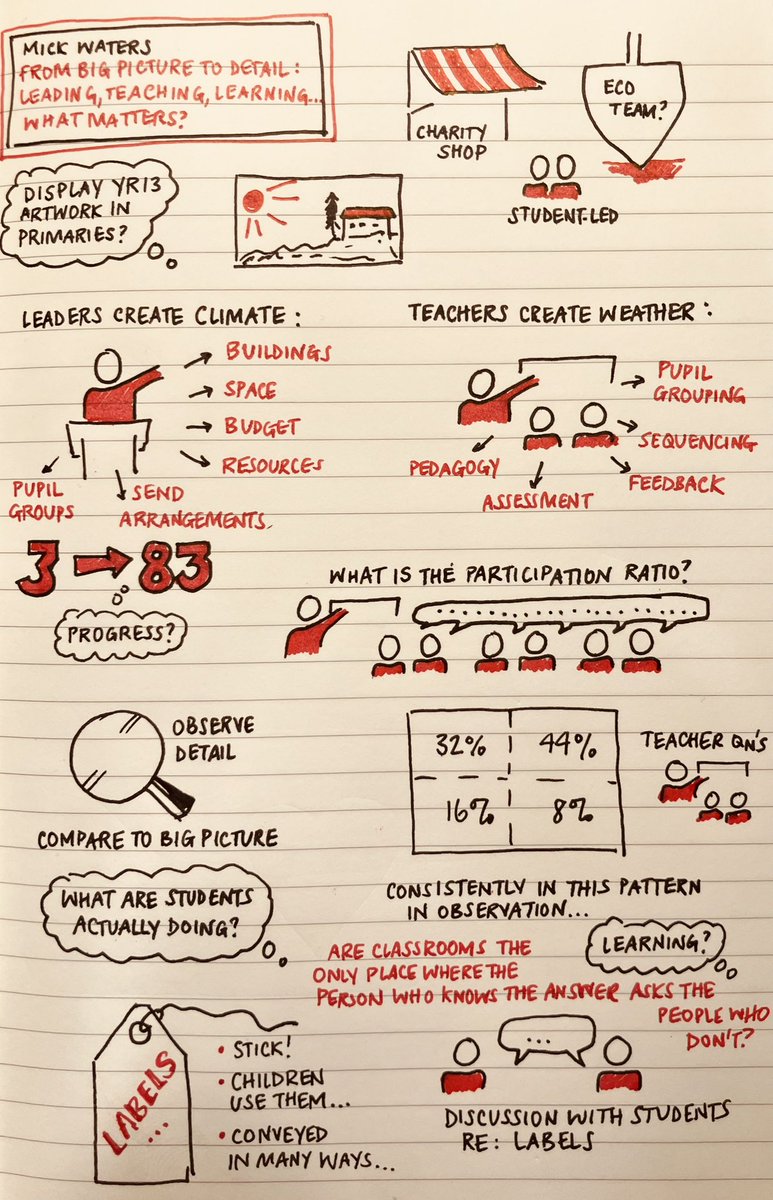 MICK WATERS
FROM BIG PICTURE TO DETAIL:
LEADING, TEACHING, LEARNING...
WHAT MATTERS?
CHARITY
SHOP
ECO
TEAM?
STUDENT-LED
DISPLAY YR13
ARTWORK IN
PRIMARIES?
LEADERS CREATE CLIMATE:
BUILDINGS
SPACE
BUDGET
RESOURCES
PUPIL
GROUPS
SEND
ARRANGEMENTS.
TEACHERS CREATE WEATHER:
PUPIL
GROUPING
SEQUENCING
FEEDBACK
PEDAGOGY
ASSESSMENT
3 → 83
PROGRESS?
WHAT IS THE PARTICIPATION RATIO?
OBSERVE
DETAIL
COMPARE TO BIG PICTURE
32% 44%
16% 8%
TEACHER QN'S
WHAT ARE STUDENTS
ACTUALLY DOING?
CONSISTENTLY IN THIS PATTERN
IN OBSERVATION...
LEARNING?
ARE CLASSROOMS THE
ONLY PLACE WHERE THE
PERSON WHO KNOWS THE ANSWER ASKS THE
PEOPLE WHO
DON'T?
LABELS
...
• STICK!
• CHILDREN
USE THEM...
• CONVEYED
IN MANY WAYS...
...
DISCUSSION WITH STUDENTS
RE: LABELS